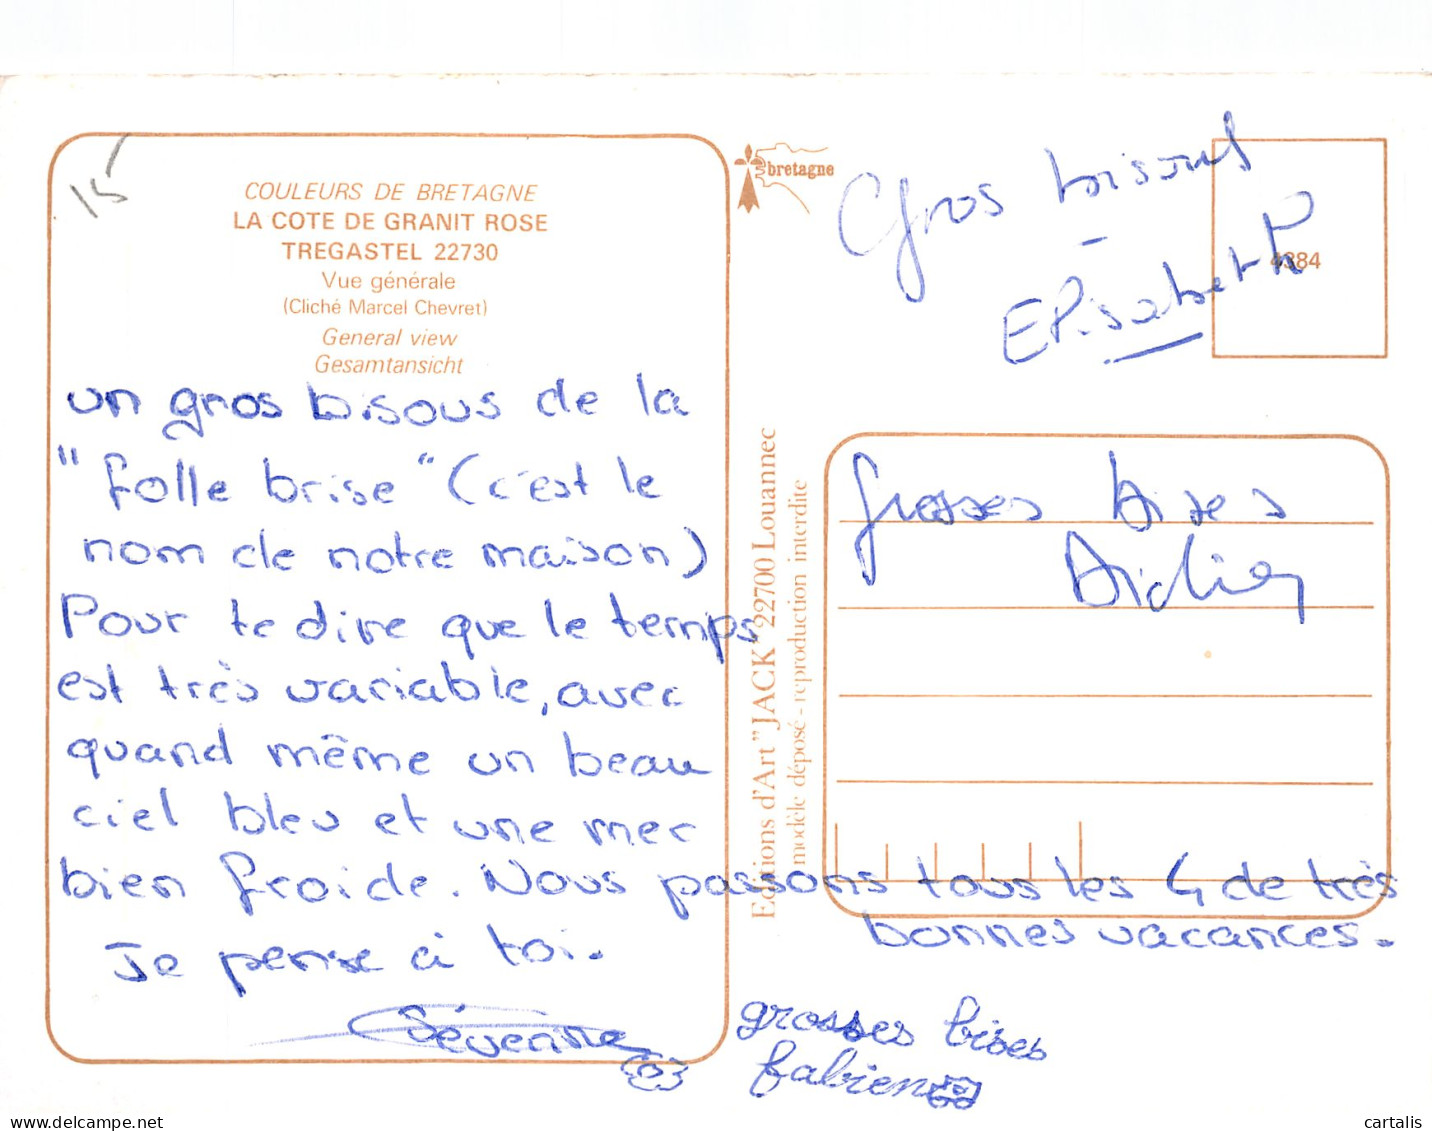 15
COULEURS DE BRETAGNE
LA COTE DE GRANIT ROSE
TREGASTEL 22730
Vue générale
(Cliché Marcel Chevret)
General view
Gesamtansicht
un gros bisous de la
"folle brise" (c'est le
nom de notre maison)
Pour te dire que le temps
est très variable, avec
quand même un beau
ciel bleu et une mer
bien froide. Nous passons tous les 4 de très
bonnes vacances.
Je pense à toi.
Séverine
bretagne
Gros bisous
Elisabeth
4384
Editions d'Art "JACK" 22700 Louannec
modèle déposé - reproduction interdite
Grosses bises
Didier
grosses bises
fabien
delcampe.net
cartalis